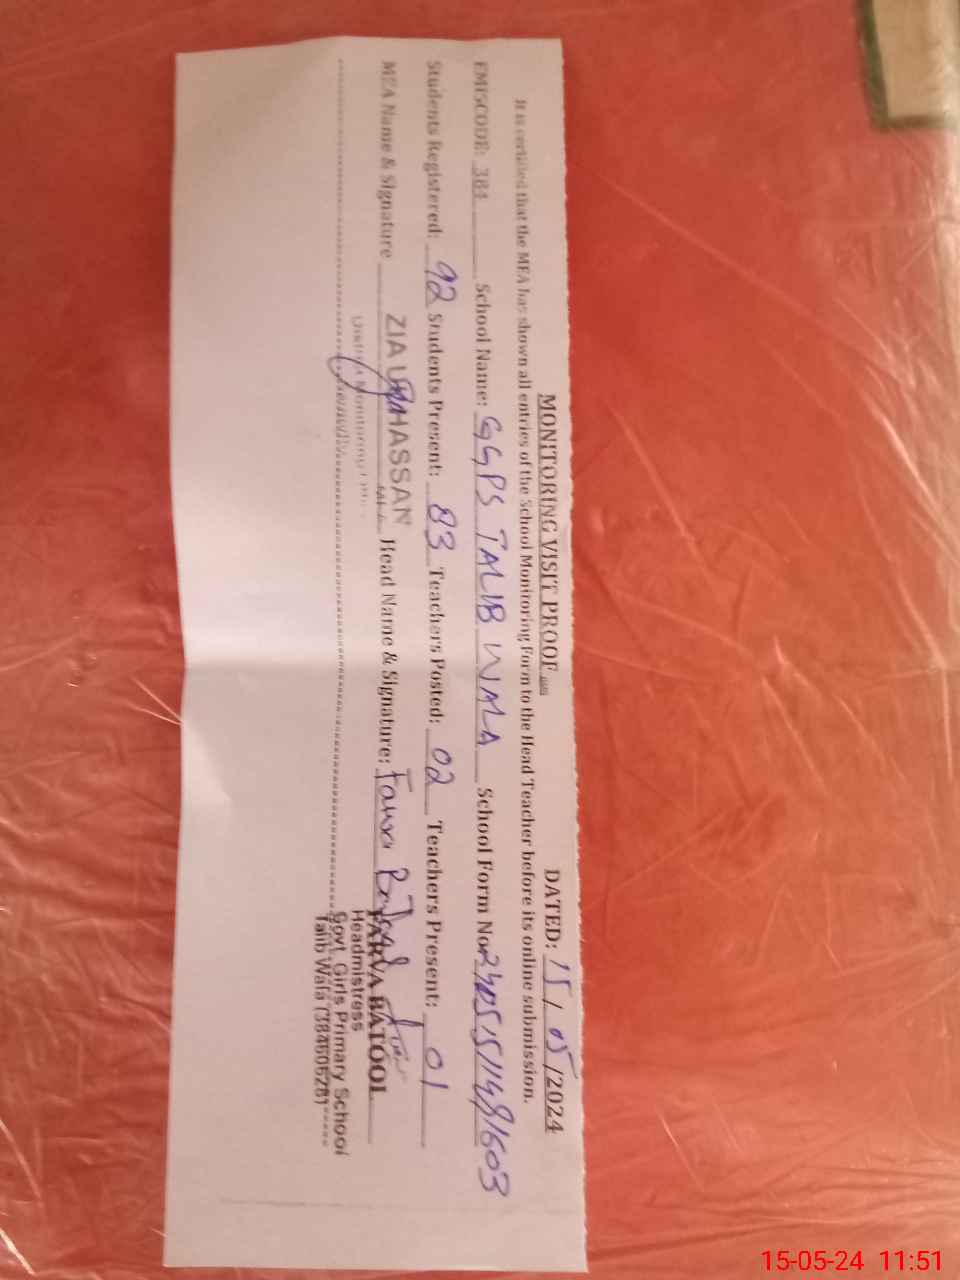 MONITORING VISIT PROOF DATED: 15/05/2024
It is certified that the MEA has shown all entries of the School Monitoring Form to the Head Teacher before its online submission.
EMISCODE: 384 School Name: GGPS TALIB WALA School Form No.
Students Registered: 92 Students Present: 83 Teachers Posted: 02 Teachers Present: 01
MEA Name & Signature ZIA HASSAN Head Name & Signature:
District Monitoring
FARVA BATOOL
Headmistress
Govt. Girls Primary School
Talib Wala
15-05-24 11:51